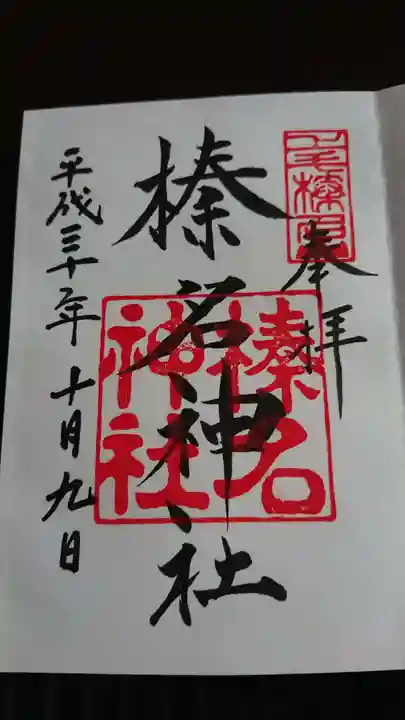 奉拝
榛名神社
榛名神社
平成三十年十月九日